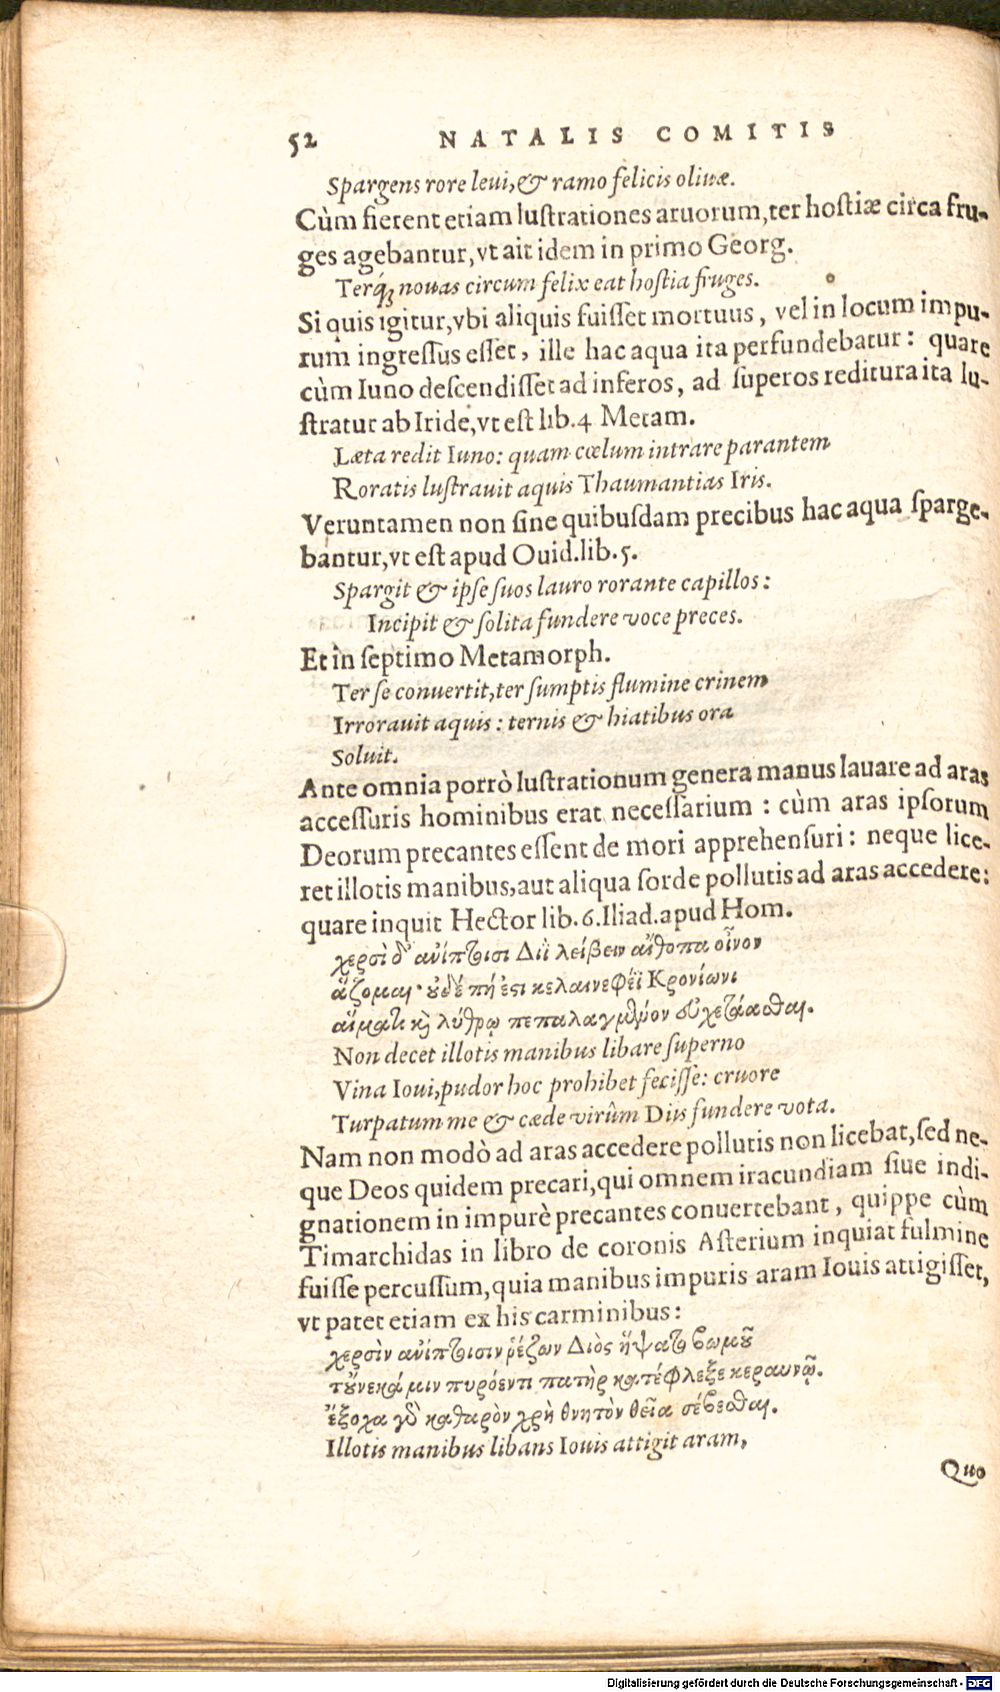 52 NATALIS COMITIS
Spargens rore leui, & ramo felicis oliuæ.
Cùm fierent etiam lustrationes aruorum, ter hostiæ circa fru-
ges agebantur, vt ait idem in primo Georg.
Terq́; nouas circum felix eat hostia fruges.
Si quis igitur, vbi aliquis fuisset mortuus, vel in locum impu-
rum ingressus esset, ille hac aqua ita perfundebatur: quare
cùm Iuno descendisset ad inferos, ad superos reditura ita lu-
stratur ab Iride, vt est lib. 4 Metam.
Læta redit Iuno: quam cœlum intrare parantem
Roratis lustrauit aquis Thaumantias Iris.
Veruntamen non sine quibusdam precibus hac aqua sparge-
bantur, vt est apud Ouid. lib. 5.
Spargit & ipse suos lauro rorante capillos:
Incipit & solita fundere voce preces.
Et in septimo Metamorph.
Ter se conuertit, ter sumptis flumine crinem
Irrorauit aquis: ternis & hiatibus ora
Soluit.
Ante omnia porrò lustrationum genera manus lauare ad aras
accessuris hominibus erat necessarium: cùm aras ipsorum
Deorum precantes essent de mori apprehensuri: neque lice-
ret illotis manibus, aut aliqua sorde pollutis ad aras accedere:
quare inquit Hector lib. 6. Iliad. apud Hom.
χερσὶ δ' ἀνίπτοισι Διῒ λείβειν αἴθοπα οἶνον
ἅζομαι· οὐδέ πή ἐστι κελαινεφέϊ Κρονίωνι
αἵματι καὶ λύθρῳ πεπαλαγμένον εὐχετάασθαι.
Non decet illotis manibus libare superno
Vina Ioui, pudor hoc prohibet fecisse: cruore
Turpatum me & cæde virûm Diis fundere vota.
Nam non modò ad aras accedere pollutis non licebat, sed ne-
que Deos quidem precari, qui omnem iracundiam siue indi-
gnationem in impurè precantes conuertebant, quippe cùm
Timarchidas in libro de coronis Asterium inquiat fulmine
fuisse percussum, quia manibus impuris aram Iouis attigisset,
vt patet etiam ex his carminibus:
χερσὶν ἀνίπτοισιν ῥέζων Διὸς ἥψατο βωμοῦ
τοὔνεκά μιν πυρόεντι πατὴρ κατέφλεξε κεραυνῷ.
ἔξοχα γὰρ καθαρὸν χρὴ θνητὸν θεῖα σέβεσθαι.
Illotis manibus libans Iouis attigit aram,
Quo
Digitalisierung gefördert durch die Deutsche Forschungsgemeinschaft - DFG